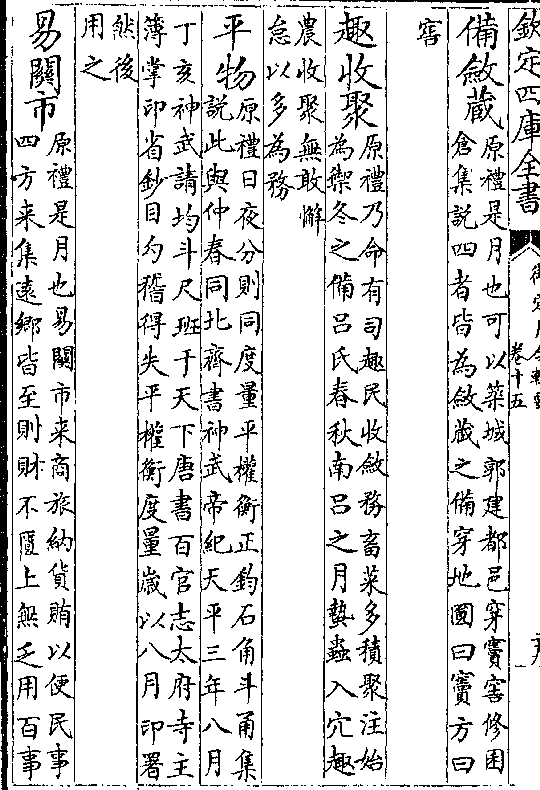 欽定四庫全書
御定月令輯要
卷十五
備斂藏原禮是月也可以築城郭建都邑穿竇窖修囷
倉集說四者皆為斂藏之備穿地圓曰竇方曰
窖
趣收聚原禮乃命有司趣民收斂務畜菜多積聚注始
為禦冬之備呂氏春秋南呂之月蟄蟲入穴趣
農收聚無敢懈
怠以多為務
平物原禮日夜分則同度量平權衡正鈞石角斗甬集
說此與仲春同北齊書神武帝紀天平三年八月
丁亥神武請均斗尺班于天下唐書百官志太府寺主
簿掌印省鈔目勾稽得失平權衡度量歲以八月印署
然後
用之
易關市原禮是月也易關市来商旅納貨賄以便民事
四方来集遠鄉皆至則財不匱上無乏用百事